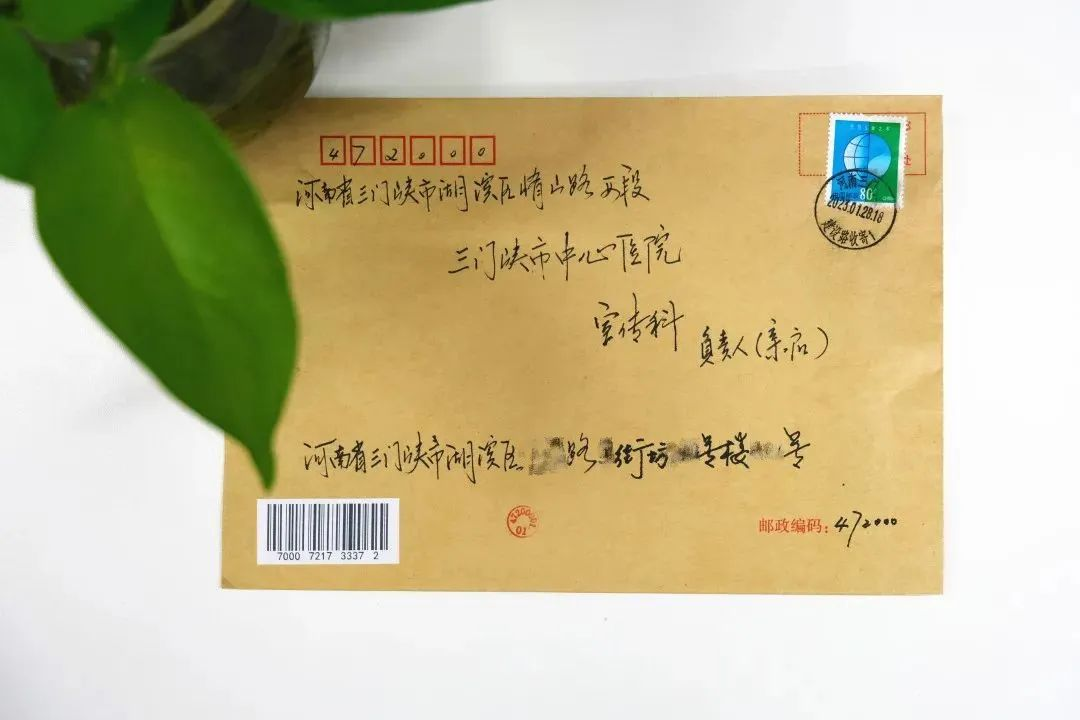 472000
河南省三门峡市湖滨区崤山路西段
三门峡市中心医院
宣传科
负责人(亲启)
80
2023.01.28.18
建设路收寄1
河南省三门峡市湖滨区 路 街坊 号楼 号
7000 7217 3337 2
邮政编码:472000